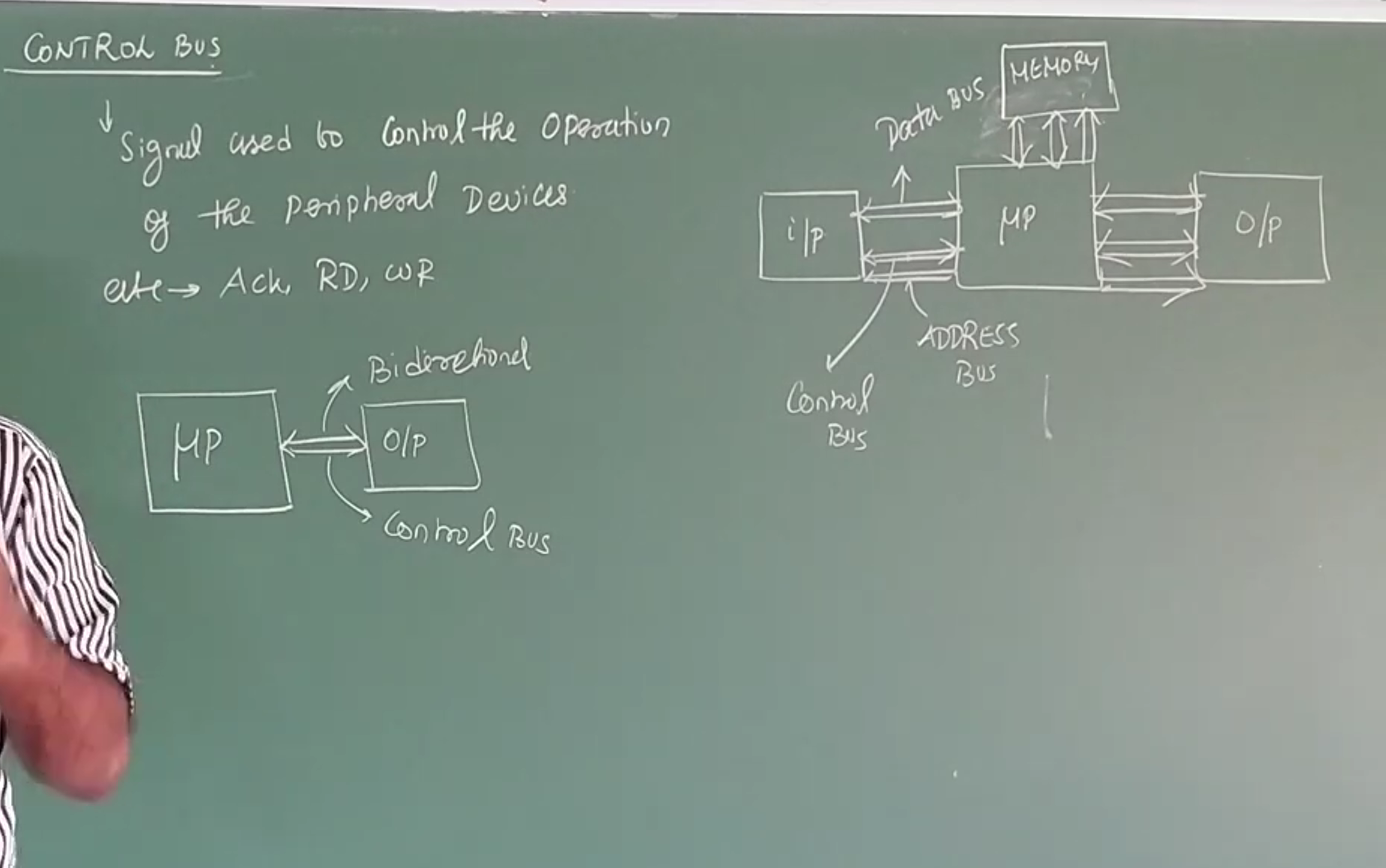 CONTROL BUS
↓
Signal used to Control the Operation
of the Peripheral Devices
→ Ack, RD, WR
Bidirectional
μP
O/P
Control BUS
MEMORY
Data BUS
i/P
μP
O/P
ADDRESS
BUS
Control
BUS